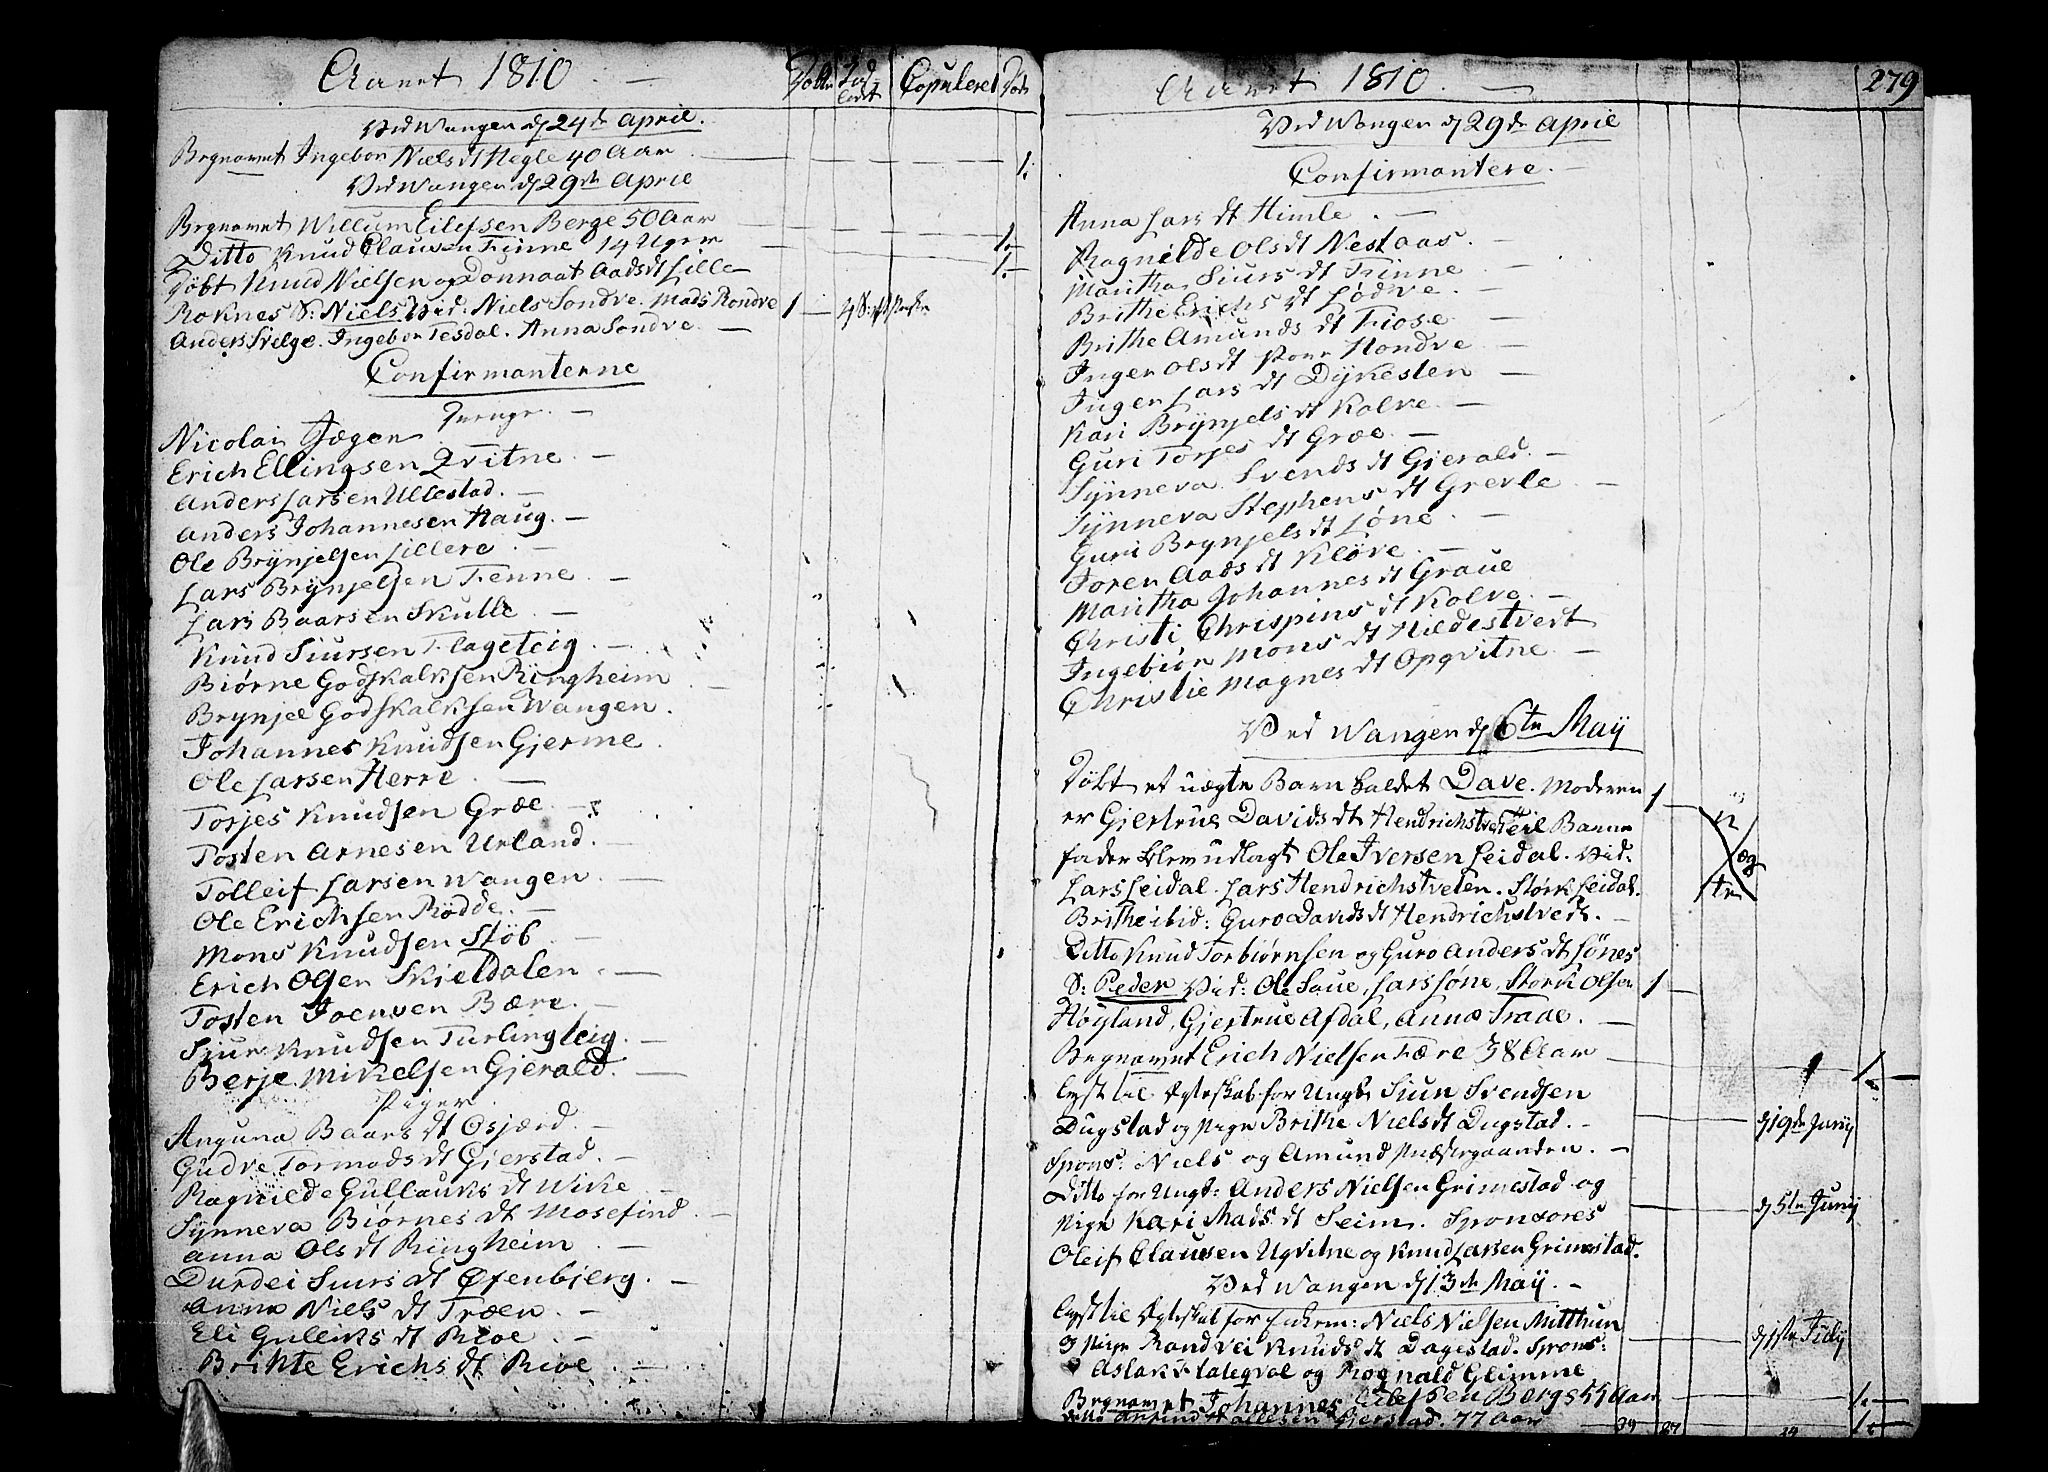 Aaret 1810.
Døbte
Copuleret
Døde
Ved Wangen d 24de April.
Begravet Ingebor Nielsdt Hegle 40 Aar
1.
Ved Wangen d 29de April
Begravet Willum Eilefsen Berge 50 Aar
1.
Ditto Knud Clausen Finne 14 Uger
1.
Døbt Knud Nielsen og Donnaat Aadsdt Lille
Roknes S: Niels Vid. Niels Sondve. Mads Rondve 1
Anders Svelge. Ingebor Tesdal. Anna Sondve.
Confirmanterne
Drenge.
Nicolai Jæger
Erich Ellingsen Qvitne
Anders Larsen Ullestad.
Anders Johannesen Haug.
Ole Brynjelsen Lillere
Lars Brynjelsen Tenne
Lars Baarsen Skulle
Knud Siursen Flageteig
Biørne Godskalksen Ringheim
Brynjel Godskalksen Wangen.
Johannes Knudsen Gjerme
Ole Larsen Herre
Torjes Knudsen Græe
Tosten Arnesen Urland.
Tolleif Larsen Wangen
Ole Erichsen Rødde.
Mons Knudsen Støb
Erich Olsen Skieldalen
Tosten Joensen Bære.
Siur Knudsen Turlingteig.
Berje Mikelsen Gjerald.
Piger
Anguna Baarsdt Osjærd.
Gudve Tormodsdt Gjerstad.
Ragnilde Gullauksdt Wike
Synneva Biørnesdt Mosefind.
Anna Olsdt Ringheim
Durdei Siursdt Øfenbjerg.
Anna Nielsdt Træen.
Eli Gulliksdt Rioe
Brihte Erichsdt Rioe
Aaret 1810.
279
Ved Wangen d 29de April
Confirmantere.
Anna Larsdt Himle.
Ragnilde Olsdt Nestaas.
Maritha Siursdt Finne
Brithe Erichsdt Lødve.
Brithe Amundsdt Fiose
Inger Olsdt Hondve
Inger Larsdt Dykesten
Kari Brynjelsdt Kolve.
Guri Torjesdt Græe.
Synneva Svendsdt Gjerald.
Synneva Stephensdt Grevle
Guri Brynjelsdt Løne
Joren Aadsdt Kløve.
Maritha Johannesdt Graue
Christi Chrispinsdt Kolve.
Ingebiør Monsdt Hildestvedt
Christie Magnesdt Opqvitne
Ved Wangen d 6te May
Døbt et uægte Barn kaldet Dave. Moderen 1
er Gjertrue Davidsdt Hendrichstvet Til Barne
fader blev udlagt Ole Iversen Leidal. Vid:
Lars Leidal. Lars Hendrichstveten. Størk Leidal.
Brithe ibid: Guro Davidsdt Hendrichstvedt.
Ditto Knud Torbiørnsen og Guro Andersdt Lønes
S: Peder Vid: Ole Saue, Lars Løne, Størk Olsen 1
Høyland, Gjertrue Afdal, Anna Traae.
Begravet Erich Nielsen Fære 38 Aar
1
Lyst til Egteskab for Ungk Siur Svendsen
Dugstad og Pige Brithe Nielsdt Dugstad.
d 19de Juny
Spons: Niels og Amund Præstegaarden.
Ditto for Ungk: Anders Nielsen Grimestad og
Pige Kari Madsdt Seim. Sponsores
d 5te Juny
Oleif Clausen Ugvitne og Knud Larsen Grimestad.
Ved Wangen d 13de May.
Lyst til Egteskab for Enkem: Niels Nielsen Mitthun
og Pige Randvei Knudsdt Dagestad. Spons:
d 1ste July
Aslak Flateqval og Rognald Glimme
Begravet Johannes Eilefsen Berge 55 Aar
1.
Ditto Anfind Hallesen Gjerstad. 77 Aar
1.